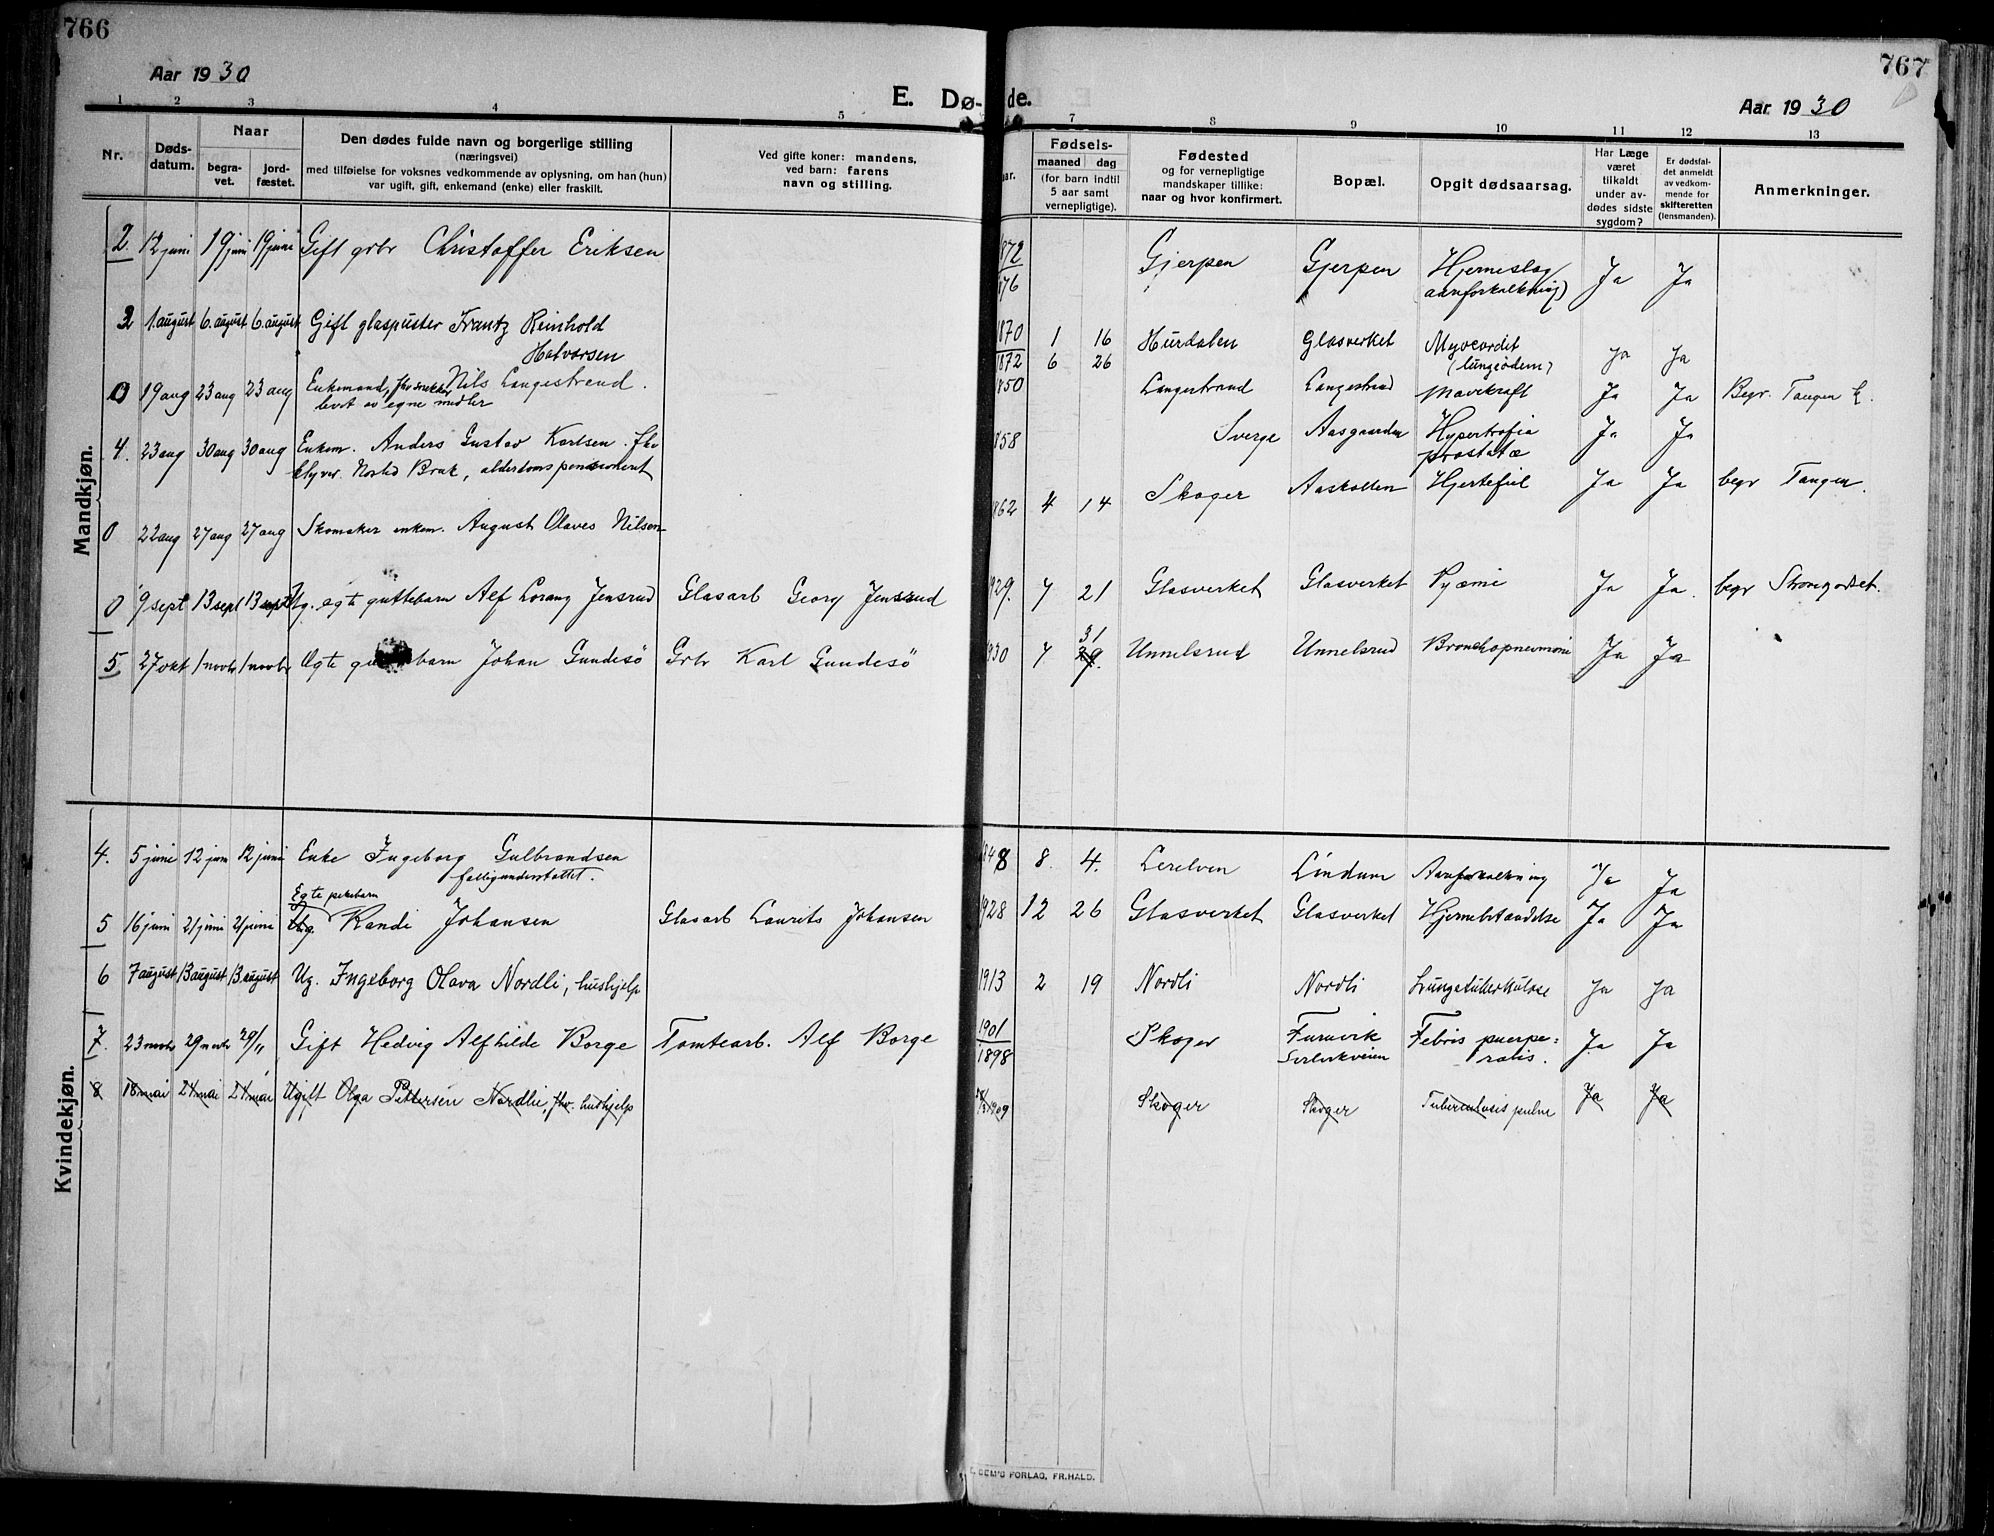 766
Aar 1930
E. Dø- de.
767
Aar 1930
1 2 3 4 5 7 8 9 10 11 12 13
Nr.
Døds-
datum.
Naar
begra-
vet.
jord-
fæstet.
Den dødes fulde navn og borgerlige stilling
(næringsvei)
med tilføielse for voksnes vedkommende av oplysning, om han (hun)
var ugift, gift, enkemand (enke) eller fraskilt.
Ved gifte koner: mandens,
ved barn: farens
navn og stilling.
Fødsels-
maaned dag
(for barn indtil
5 aar samt
vernepligtige).
Fødested
og for vernepligtige
mandskaper tillike:
naar og hvor konfirmert.
Bopæl.
Opgit dødsaarsag.
Har Læge
været
tilkaldt
under av-
dødes sidste
sygdom?
Er dødsfal-
det anmeldt
av vedkom-
mende for
skifteretten
(lensmanden).
Anmerkninger.
Mandkjøn.
2. 12 juni 19 juni 19 juni Gift grbr Christoffer Eriksen 1872 Gjerpen Gjerpen Hjerneslag Ja Ja
76 (aareforkalkning)
3 1. august 6. august 6. august Gift glaspuster Frantz Reinhold 1870 1 16 Hurdalen Glasverket Myocardit Ja Ja
Halvorsen 1872 6 26 (lungeødem)
0 19 aug 23 aug 23 aug Enkemand, fhv snekker Nils Langestrand. 1850 Langestrand Langestrand Mavekræft Ja Ja Begr. Tangen
levet av egne midler
4. 23 aug 30 aug 30 aug Enkem. Anders Gustav Karlsen. fhv 1858 Sverge Aasgaarden Hypertrofia Ja Ja
sliper. Nøsted Bruk, alderdoms pensionert prostatæ
0 22 aug 27 aug 27 aug Skomaker enkem. August Olaves Nilsen 1862 4 14 Skoger Aaskollen Hjertefeil Ja Ja begr Tangen.
0 9 sept 13 sept 13 sept Ug. egte guttebarn Alf Lorang Jensrud Glasarb Georg Jensrud 1929. 7 21 Glasverket Glasverket Pyæmi Ja Ja. begr Strømgodset.
5. 27 okt 1 novbr 1 novbr Egte guttebarn Johan Gundesø Grbr Karl Gundesø 1930 7 31 29. Unnelsrud Unnelsrud Bronchopneumoni Ja Ja
Kvindekjøn.
4. 5 juni 12 juni 12 juni Enke Ingeborg Gulbrandsen 1848 8. 4. Lerelven Lindum Aareforkalkning Ja Ja
fattigunderstøttet.
Egte pikebarn
5 16 juni 21 juni 21 juni Ug. Randi Johansen Glasarb Laurits Johansen 1928 12 26 Glasverket Glasverket Hjernebetændelse Ja Ja
6 7 august 13 august 13 august Ug. Ingeborg Olava Nordli, hushjelp 1913 2 19 Nordli Nordli Lungetuberkulose Ja Ja
7. 23 novbr 29 novbr 29/11 Gift Hedvig Alfhilde Borge Tomtearb. Alf Borge 1901 Skoger Furuvik Febris puerpe- Ja Ja
1898 ralis.
8 18 mai 24 mai 24 mai Ugift Olga Pettersen Nordlie, fhv. hushjelp 1909 Skoger Skoger Tuberculosis pulm Ja Ja
FORLAG, FR. HALD.